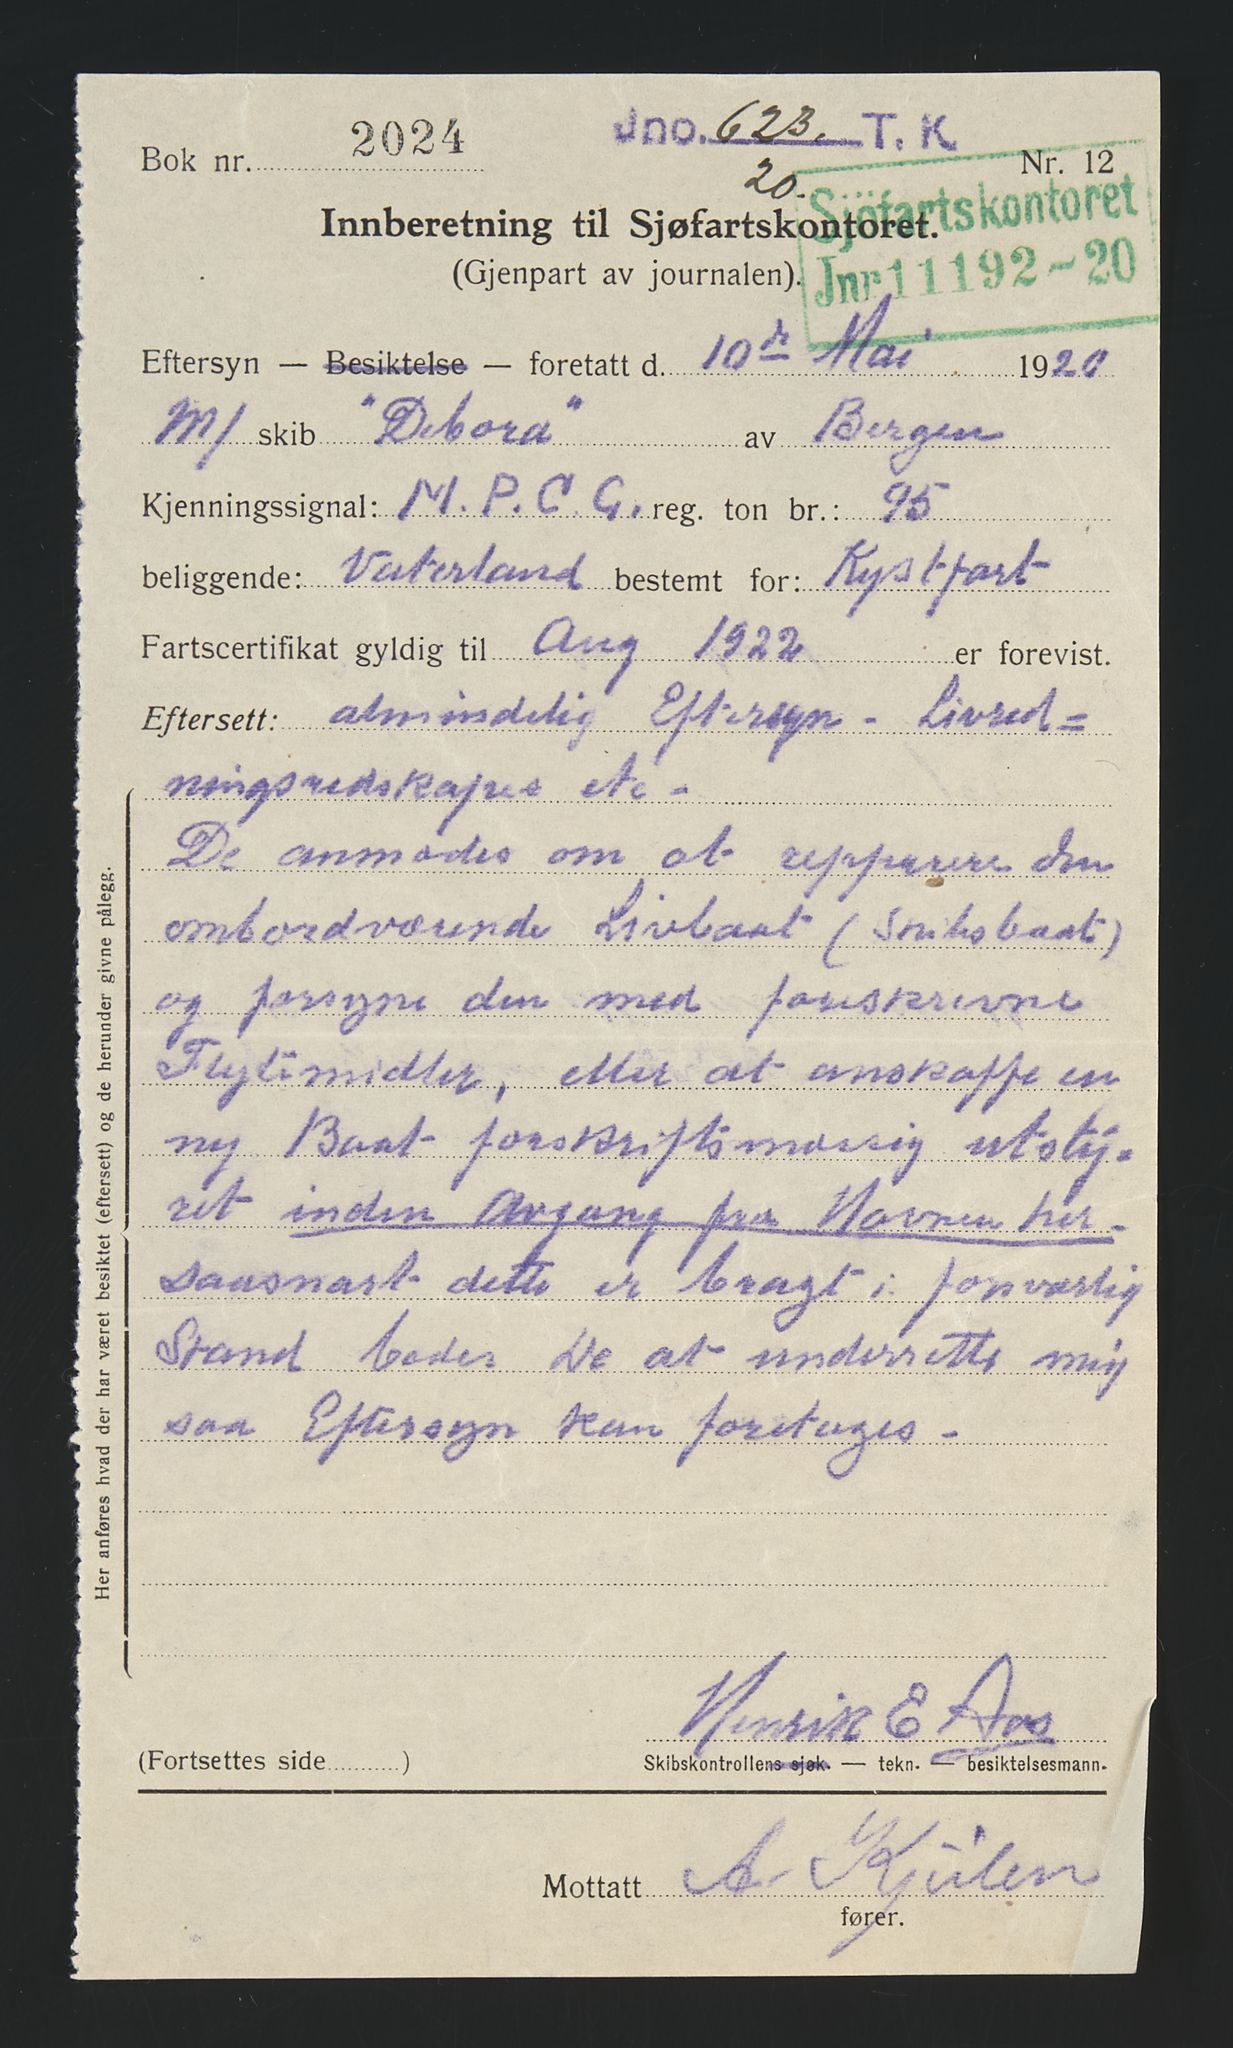 Bok nr. 2024
Jno. 623. T. K.
20.
Nr. 12
Sjöfartskontoret
Jnr 11192-20
Innberetning til Sjøfartskontoret.
(Gjenpart av journalen).
Eftersyn — Besiktelse — foretatt d. 10de Mai 1920
M/ skib "Debora" av Bergen
Kjenningssignal: M. P. C. G. reg. ton br.: 95
beliggende: Vaterland bestemt for: Kystfart
Fartscertifikat gyldig til Aug 1922 er forevist.
Eftersett: almindelig Eftersyn - Livred=
ningsredskapes etc -
De anmodes om at repparere den
ombordværende Livbaat ( baat)
og forsyne den med foreskrevne
Flytimidler, eller at anskaffe en
ny Baat forskriftsmæssig utsty=
ret inden Avgang fra Havnen her -
saasnart dette er bragt i forsvarlig
Stand bedes De at underrette mig
saa Eftersyn kan foretages -
Her anføres hvad der har været besiktet (eftersett) og de herunder givne pålegg.
Henrik E Aas
(Fortsettes side )
Skibskontrollens sjøk. — tekn. — besiktelsesmann.
Mottatt A. Kjülen
fører.